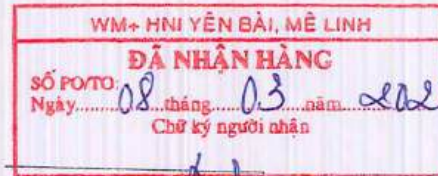 WM+ HNI YÊN BÀI, MÊ LINH
ĐÃ NHẬN HÀNG
SỐ PO/TO:
Ngày......08...tháng.....03....năm...202
Chữ ký người nhận